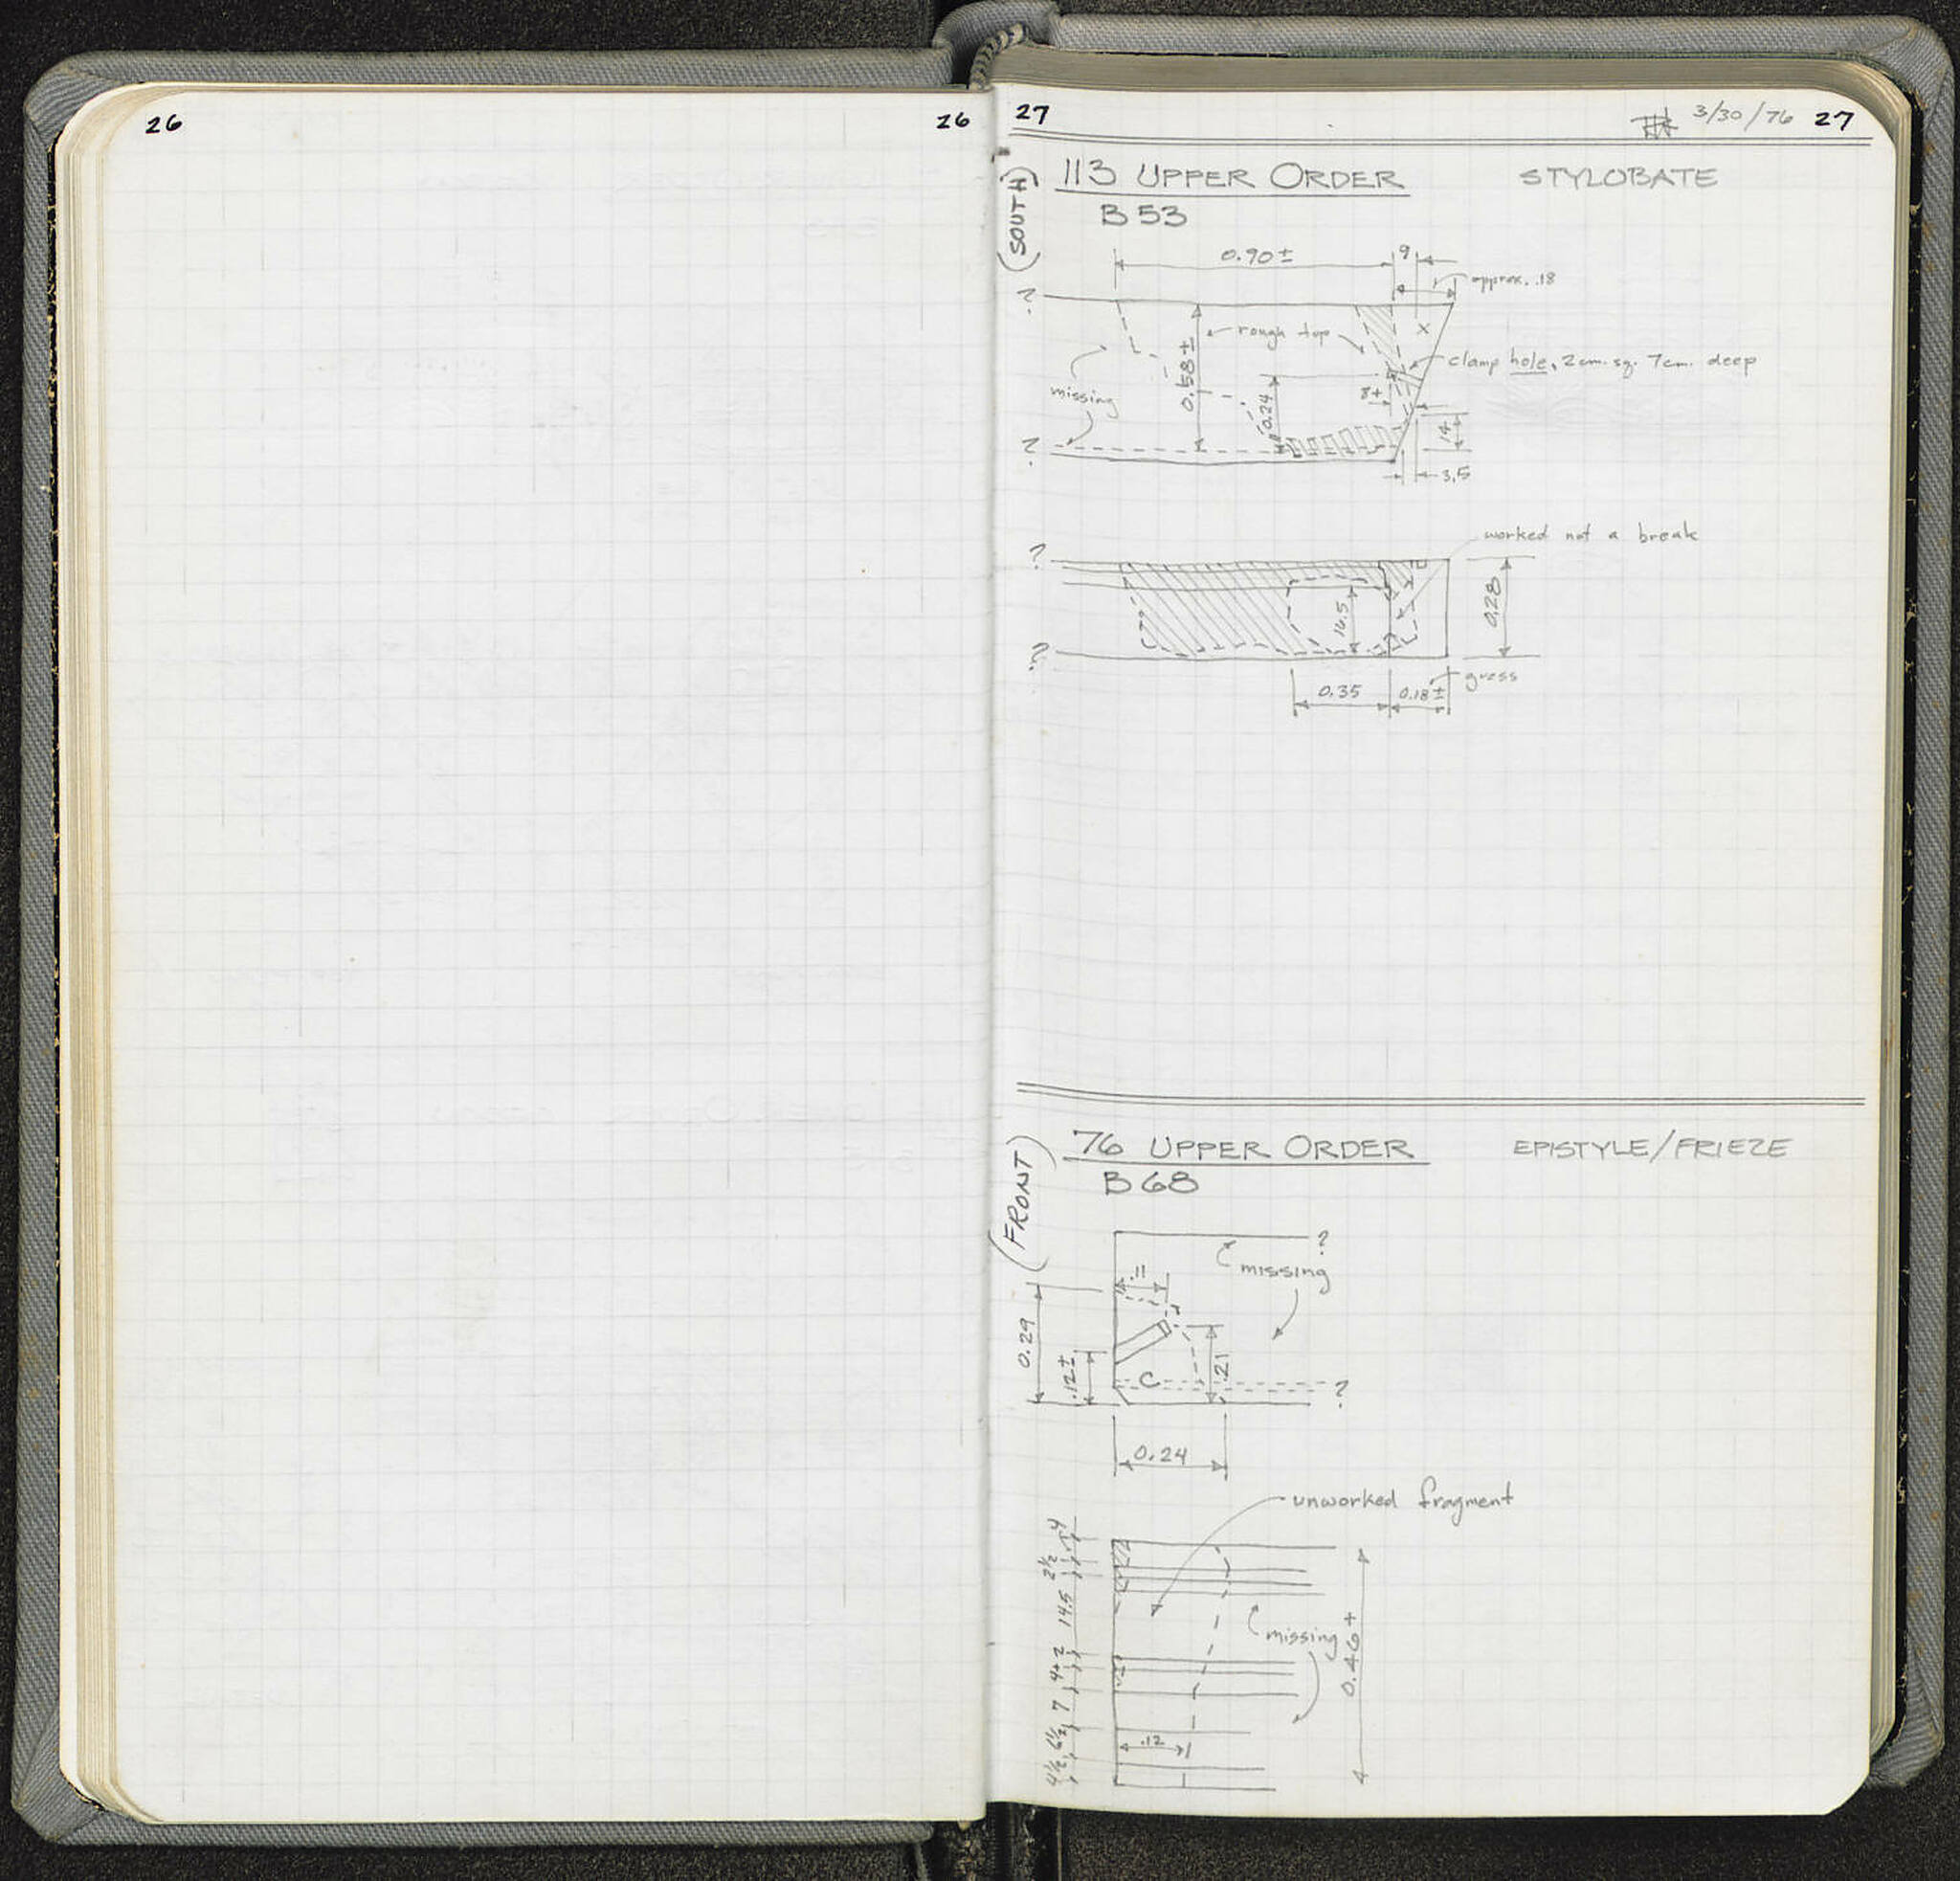 26 26
27 3/30/76 27
(SOUTH)
113 UPPER ORDER STYLOBATE
B 53
0.90± 9
approx. .18
?
rough top x
0.58±
clamp hole, 2cm. sq. 7cm. deep
missing
8+
0.24
14
?
3.5
worked not a break
?
16.5
0.28
?
guess
0.35 0.18±
(FRONT)
76 UPPER ORDER EPISTYLE/FRIEZE
B 68
?
missing
.11
0.29
.12±
C
.21
?
0.24
unworked fragment
4
2½
14.5
missing
0.46+
4+2
7
6½
4½
.12